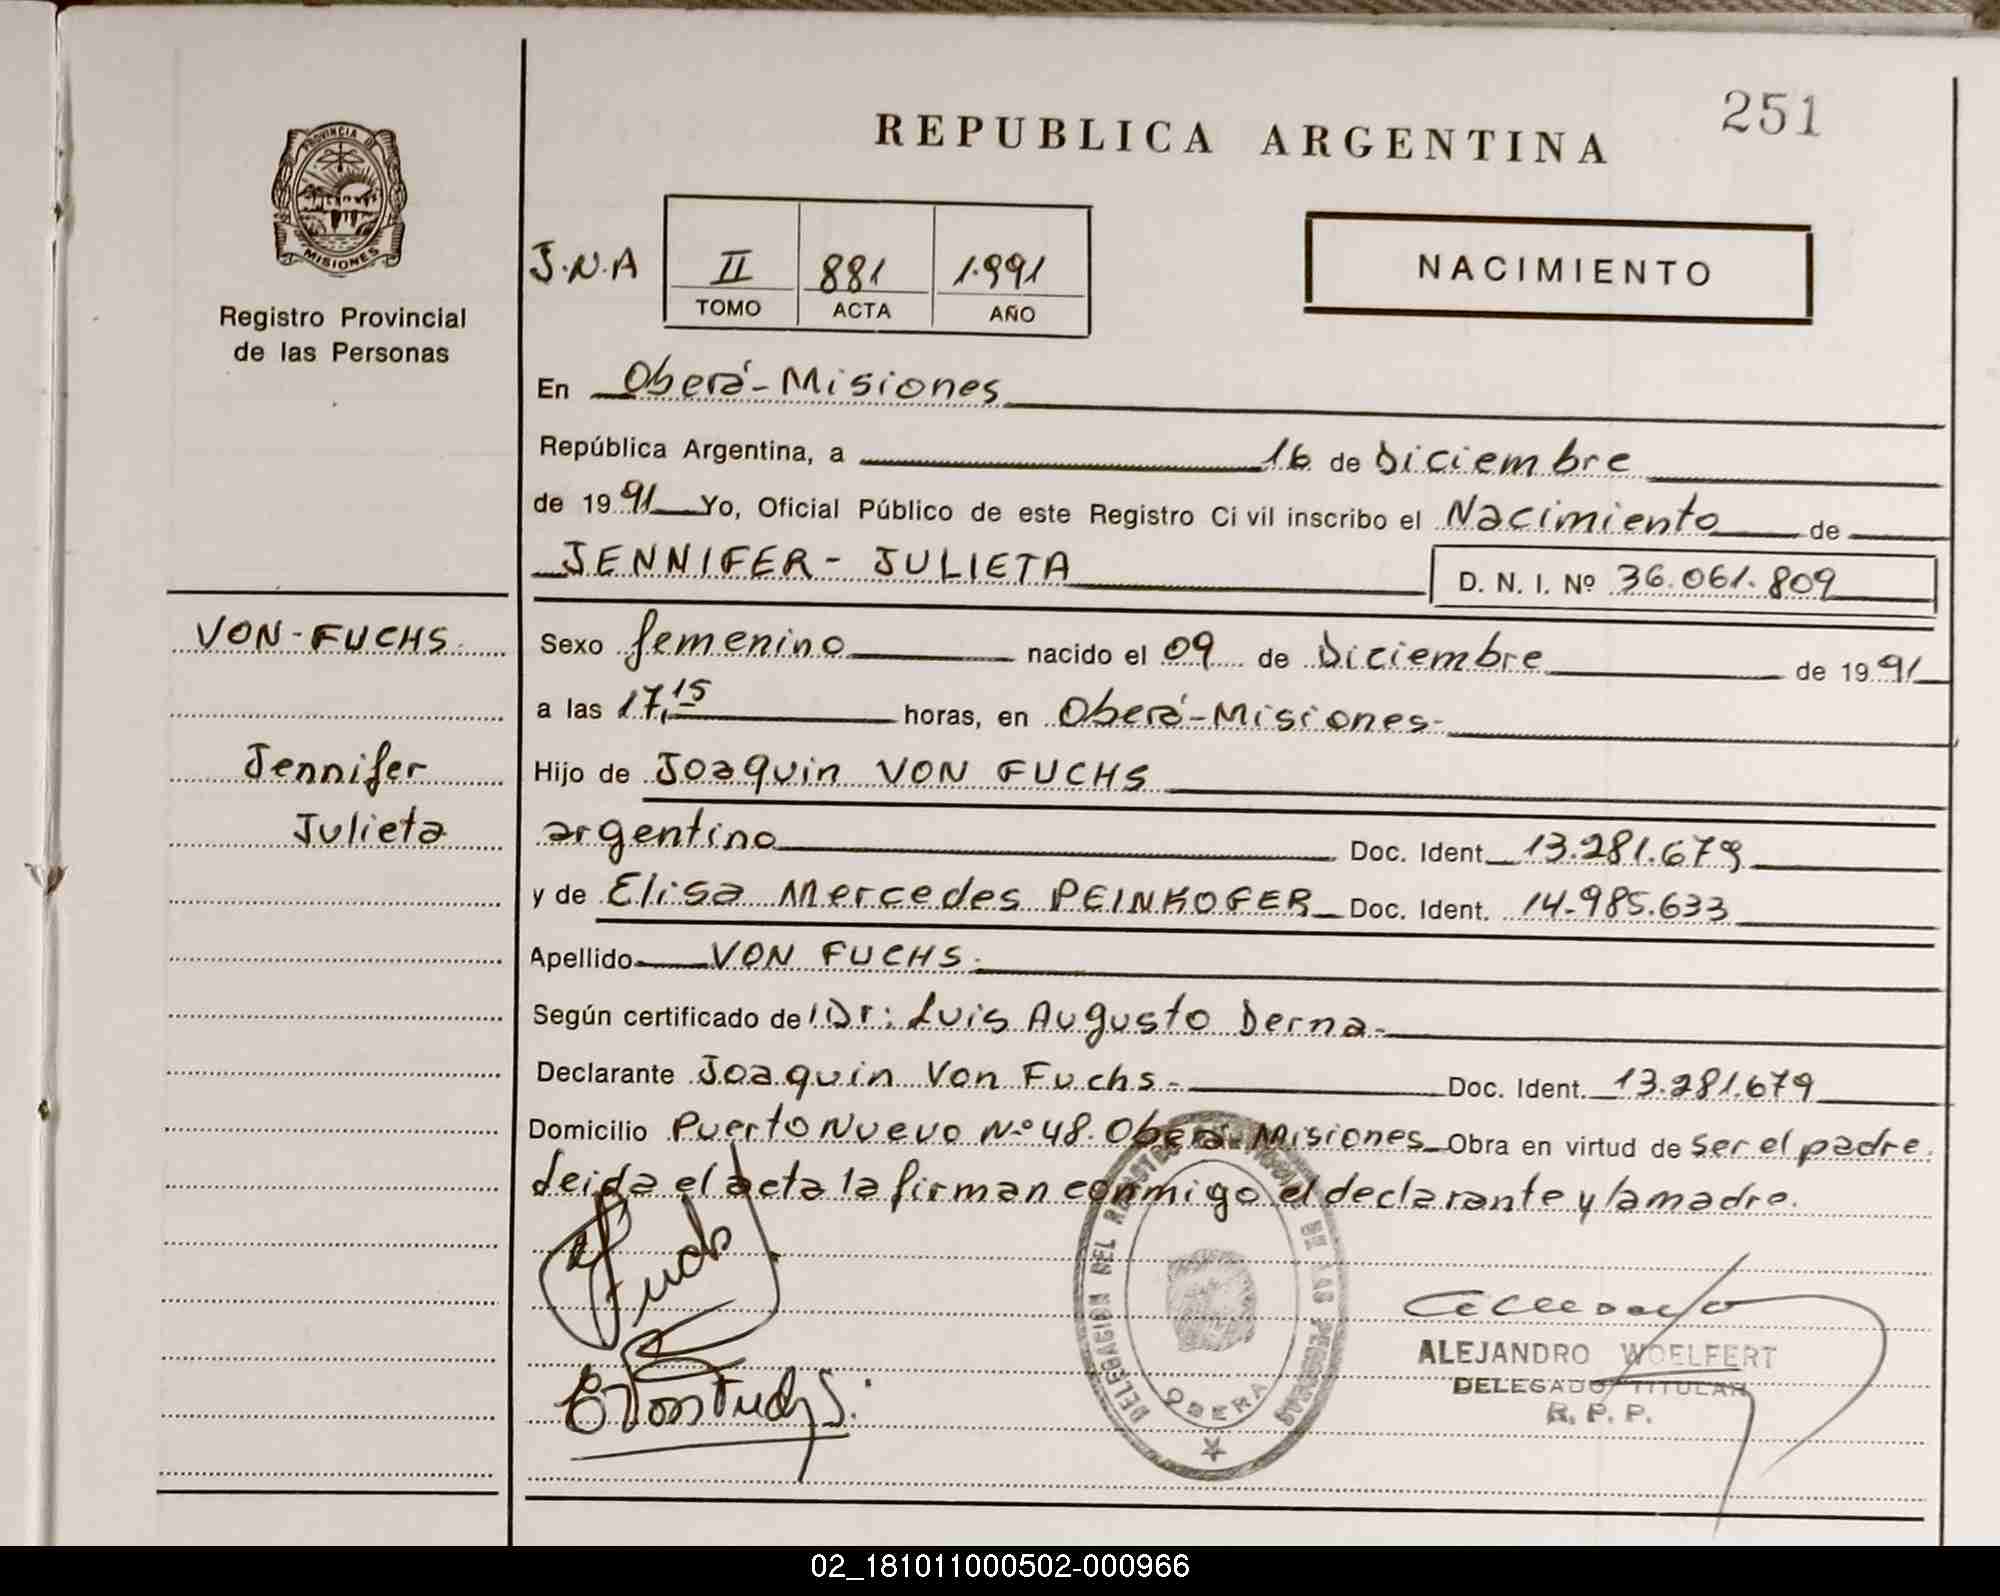 251
REPUBLICA ARGENTINA
PROVINCIA DE
MISIONES
Registro Provincial
de las Personas
J.N.A
II 881 1.991
TOMO ACTA AÑO
NACIMIENTO
En Oberá-Misiones
República Argentina, a 16 de Diciembre
de 1991 Yo, Oficial Público de este Registro Ci vil inscribo el Nacimiento de
JENNIFER - JULIETA
D. N. I. Nº 36.061.809
VON-FUCHS.
Jennifer
Julieta
Sexo femenino nacido el 09 de Diciembre de 1991
a las 17,15 horas, en Oberá-Misiones-
Hijo de Joaquin VON FUCHS
argentino Doc. Ident 13.281.679
y de Elisa Mercedes PEINKOFER Doc. Ident. 14.985.633
Apellido VON FUCHS.
Según certificado de Dr: Luis Augusto Derna-
Declarante Joaquin Von Fuchs- Doc. Ident. 13.281.679
Domicilio Puerto Nuevo Nº 48. Oberá-Misiones Obra en virtud de ser el padre.
Leida el acta la firman conmigo el declarante y la madre.
Fuchs
E Von Fuchs.
DELEGACION DEL REGISTRO PROVINCIAL DE LAS PERSONAS
OBERA
ALEJANDRO WOELFERT
DELEGADO TITULAR
R. P. P.
02_181011000502-000966